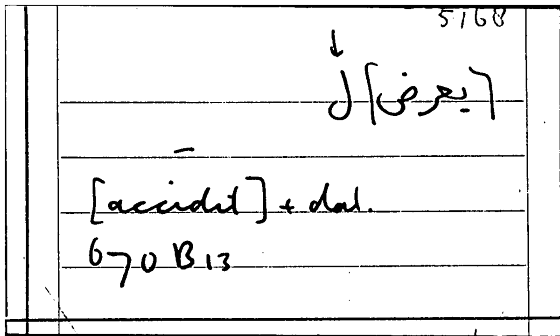 5168
↓
[يعرض] ل
[accidit] + dat.
670 B 13